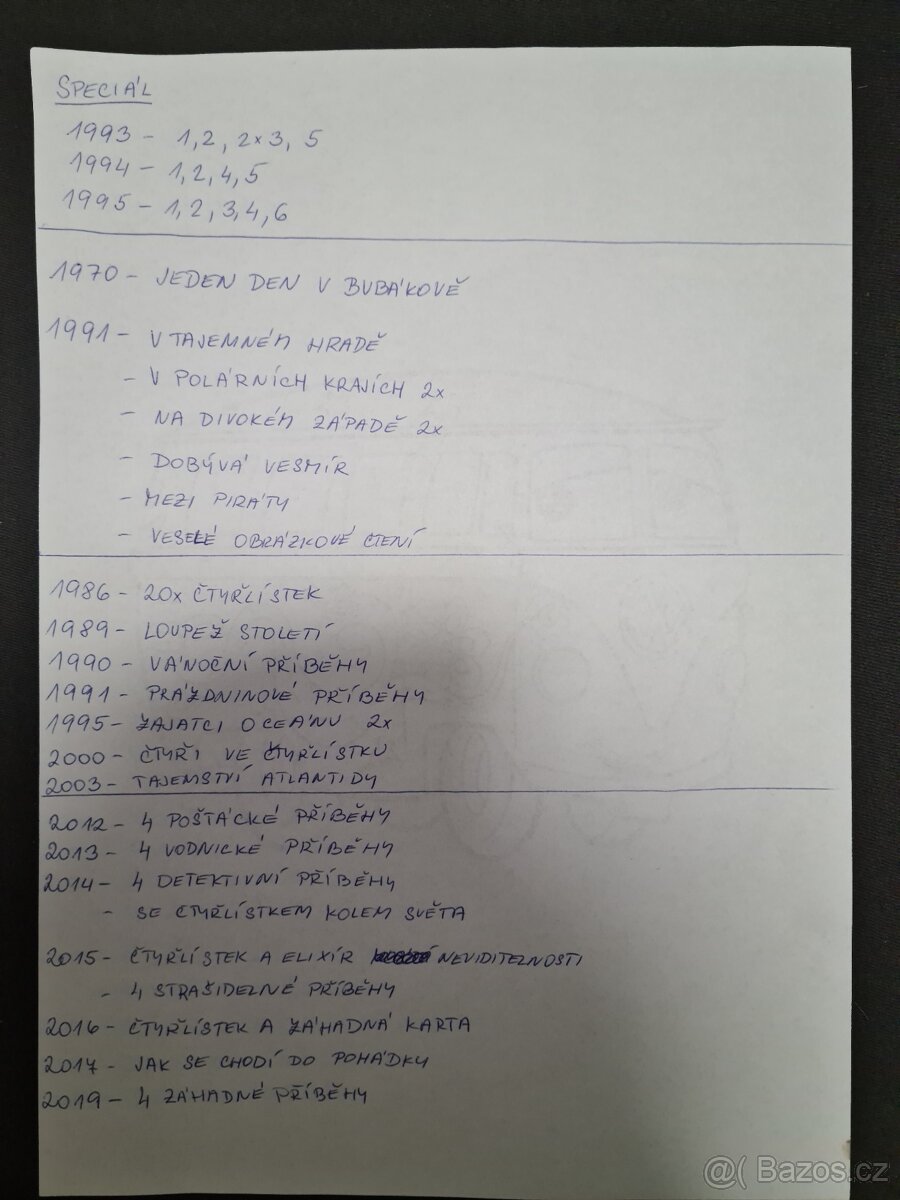 SPECIÁL
1993 - 1,2, 2x3, 5
1994 - 1,2,4,5
1995 - 1,2,3,4,6
1970 - JEDEN DEN V BUBÁKOVĚ
1991 - V TAJEMNÉM HRADĚ
- V POLÁRNÍCH KRAJÍCH 2x
- NA DIVOKÉM ZÁPADĚ 2x
- DOBÝVÁ VESMÍR
- MEZI PIRÁTY
- VESELÉ OBRÁZKOVÉ ČTENÍ
1986 - 20x ČTYŘLÍSTEK
1989 - LOUPEŽ STOLETÍ
1990 - VÁNOČNÍ PŘÍBĚHY
1991 - PRÁZDNINOVÉ PŘÍBĚHY
1995 - ZAJATCI OCEÁNU 2x
2000 - ČTYŘI VE ČTYŘLÍSTKU
2003 - TAJEMSTVÍ ATLANTIDY
2012 - 4 POŠŤÁCKÉ PŘÍBĚHY
2013 - 4 VODNICKÉ PŘÍBĚHY
2014 - 4 DETEKTIVNÍ PŘÍBĚHY
- SE ČTYŘLÍSTKEM KOLEM SVĚTA
2015 - ČTYŘLÍSTEK A ELIXÍR NEVIDITELNOSTI
- 4 STRAŠIDELNÉ PŘÍBĚHY
2016 - ČTYŘLÍSTEK A ZÁHADNÁ KARTA
2017 - JAK SE CHODÍ DO POHÁDKY
2019 - 4 ZÁHADNÉ PŘÍBĚHY
@( Bazos.cz